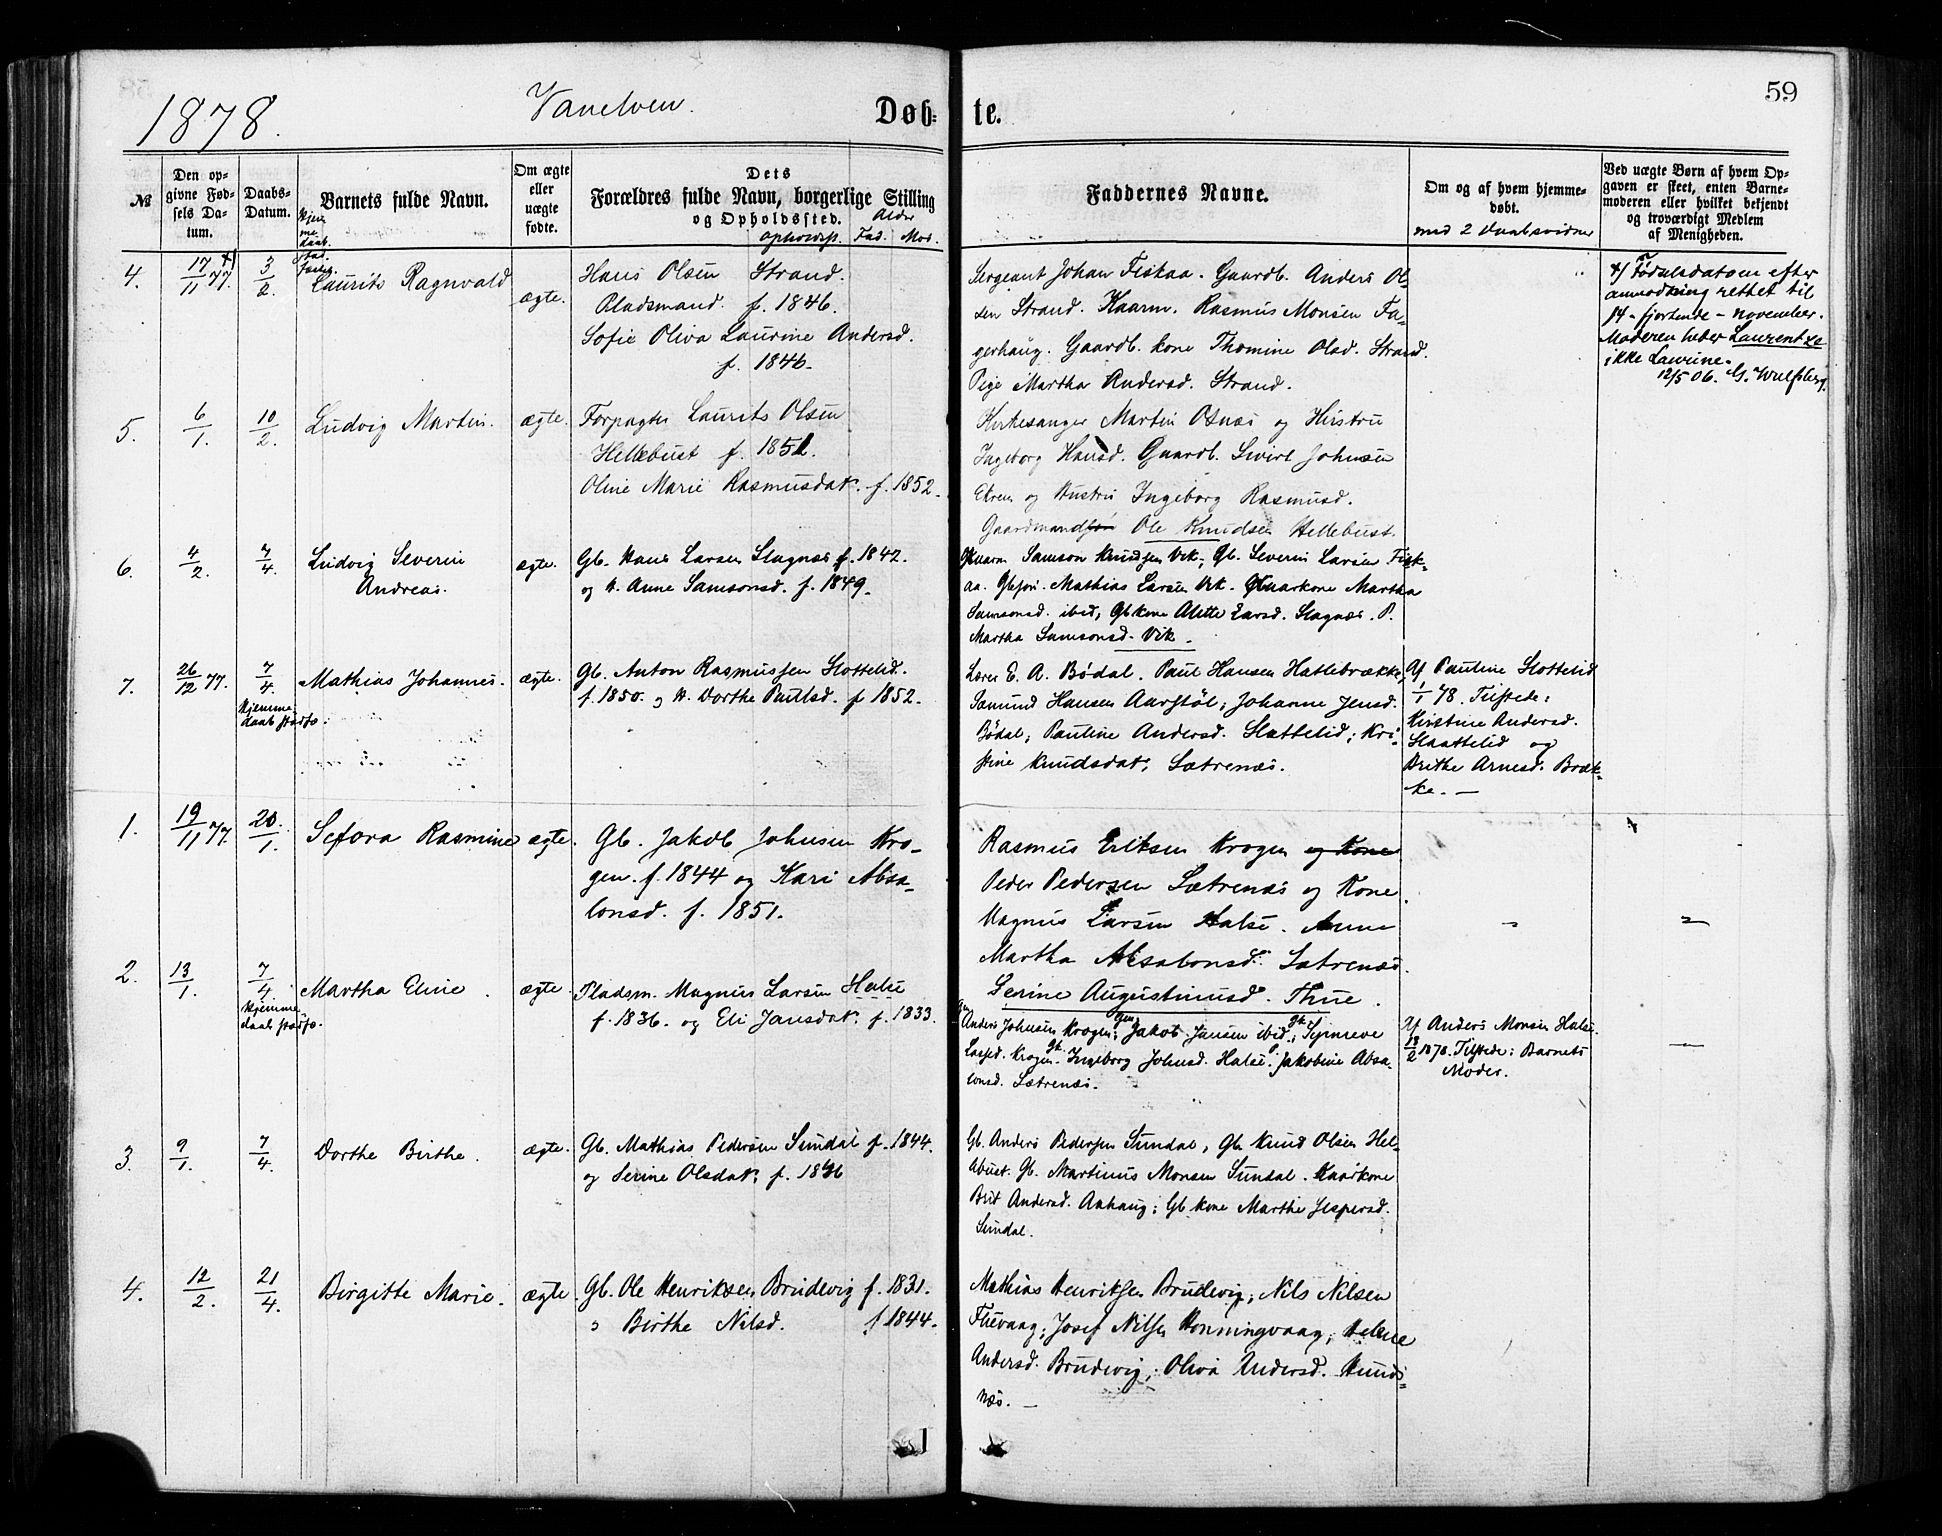 59
1878.
Vanelven.
Døb-
te.
№
Den op-
givne Fød-
sels Da-
tum.
Daabs-
Datum.
Hjem
me
daab
Barnets fulde Navn.
Om ægte
eller
uægte
fødte.
Dets
Forældres fulde Navn, borgerlige Stilling
og Opholdssted.
Alder
opholdsst. Fad. Mod.
Faddernes Navne.
Om og af hvem hjemme-
døbt.
med 2 Daabsvidner
Ved uægte Børn af hvem Op-
gaven er skeet, enten Barne-
moderen eller hvilket bekjendt
og troværdigt Medlem
af Menigheden.
4.
17/11 77. x)
3/2.
Laurits Ragnvald
ægte.
Hans Olsen Strand.
Pladsmand. f. 1846.
Sofie Oliva Laurine Andersd.
f. 1846.
Sergeant Johan Fiskaa. Gaardb. Anders Ol-
sen Strand. Kaarm. Rasmus Monsen Fa-
gerhaug. Gaardb. kone Thomine Olsd. Strand.
Pige Martha Andersd. Strand.
x) Fødselsdatoen efter
anmodning rettet til
14 - fjortende - november.
Moderen heter Laurentze
ikke Laurine.
12/5 06. G. Wulfsberg.
5.
6/1.
10/2.
Ludvig Martin.
ægte.
Forpagter Laurits Olsen
Hellebust f. 1851.
Oline Marie Rasmusdat. f. 1852.
Kirkesanger Martin Osnæs og Hustru
Ingeborg Hansd. Gaardb. Sivert Johnsen
og Hustru Ingeborg Rasmusd.
Gaardmand Ole Knudsen Hellebust.
6.
4/2.
7/4.
Ludvig Severin
Andreas.
ægte.
Gb. Hans Larsen Slagnæs f. 1842.
og H. Anne Samsonsd. f. 1849.
Kaarm Samson Knudsen Vik; Gb. Severin Larsen Fisk-
aa. Gbsøn. Mathias Larsen Vik. Kaarkone Martha
Samsonsd. ibid; Gbkone Alette Larsd. Slagnæs. P.
Martha Samsonsd. Vik.
7.
26/12 77.
7/4.
Hjemme-
daab stadfæ.
Mathias Johannes.
ægte.
Gb. Anton Rasmussen Slottelid.
f. 1850. og H. Dorthe Paulsd. f 1852.
Lærer E. A. Bødal. Paul Hansen Hattebrække,
Samund Hansen Aarstøl; Johanne Jensd.
Bødal; Pauline Andersd. Slottelid; Kri-
stine Knudsdat; Sætrenæs.
Af Pauline Slottelid
1/1 78. Tilstede:
Kirstine Andersd.
Slaattelid og
Brithe Arnesd. Bræk-
ke. —
1.
19/11 77.
20./1.
Sefora Rasmine
ægte.
Gb. Jakob Johnsen Kro-
gen. f. 1844 og Kari Absa-
lonsd. f. 1851.
Rasmus Eriksen Krogen og Kone
Peder Pedersen Sætrenæs og Kone.
Magnus Larsen Halse. Anne
Martha Absalonsd. Sætrenæs.
Serine Augustinusd. Thue.
2.
13/1.
7/4
Hjemme-
daab stadfæ.
Martha Eline.
ægte.
Pladsm. Magnus Larsen Halse
f. 1836. og Eli Jansdat. f. 1833.
Anders Johnsen Krogen; Jakob Jansen ibid; Synneve
Lassed. Krogen. Ingeborg Johnsd. Halse. Jakobine Absa-
lonsd. Sætrenæs.
Af Anders Monsen Halse.
13/2 1878. Tilstede: Barnets
Moder.
3.
9/1.
7/4.
Dorthe Birthe.
ægte.
Gb. Mathias Pedersen Sundal f. 1844.
og Serine Olsdat; f. 1846
Gb. Anders Pedersen Sundal, Gb. Knud Olsen Hel-
abust. Gb. Martinus Monsen Sundal. Kaarkone
Brit Andersd. Aahaug; Gb kone Marthe Jespersd.
Sundal.
4.
12/2.
21/4.
Birgitte Marie.
ægte.
Gb. Ole Henriksen Brudevig f. 1831.
" Birthe Nilsd. f. 1844.
Mathias Henriksen Brudevig; Nils Nilsen
Thuevaag; Josef Nilsen Honningvaag; Helene
Andersd. Brudevig; Oliva Andersd. Hunds-
næs. —